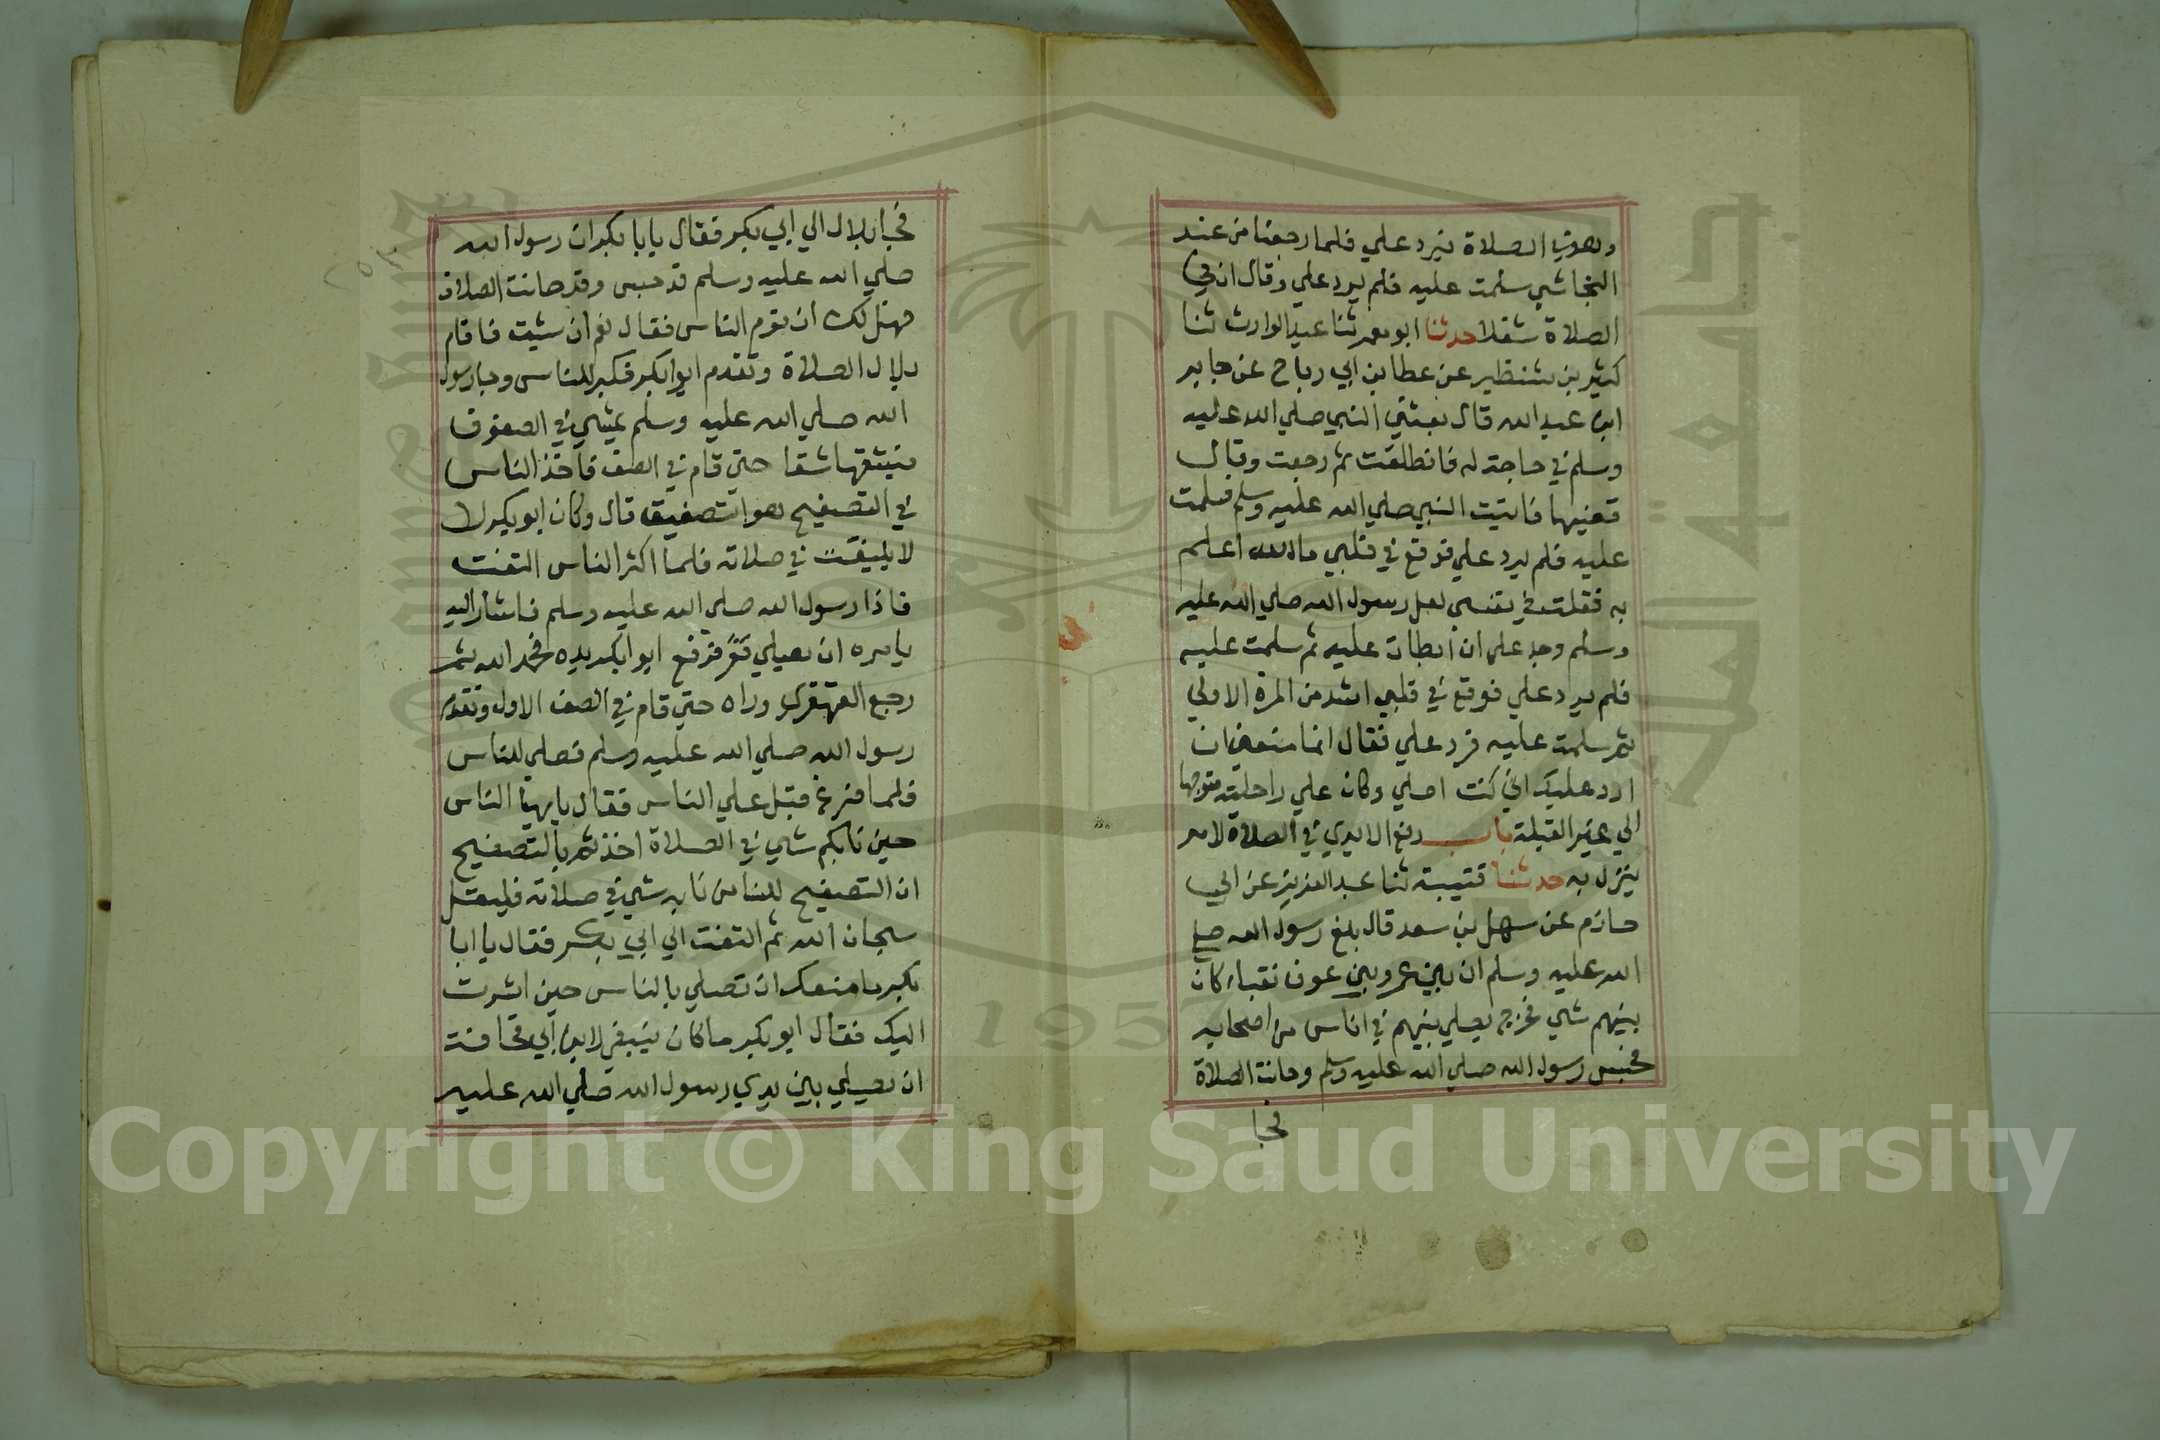 وهو في الصلاة فيرد علي فلما رجعنا من عند
النجاشي سلمت عليه فلم يرد علي وقال ان في
الصلاة شغلا حدثنا ابو معمر ثنا عبد الوارث ثنا
كثير بن شنظير عن عطا بن ابي رباح عن جابر
ابن عبد الله قال بعثني النبي صلي الله عليه
وسلم في حاجة له فانطلقت ثم رجعت وقال
قضيها فاتيت النبي صلي الله عليه وسلم فسلمت
عليه فلم يرد علي فوقع في قلبي ما الله اعلم
به فقلت في نفسي لعل رسول الله صلي الله عليه
وسلم وجد علي ان ابطات عليه ثم سلمت عليه
فلم يرد علي فوقع في قلبي اشد من المرة الاولي
ثم سلمت عليه فرد علي فقال انما منعني ان
ارد عليك اني كنت اصلي وكان علي راحلته متوجها
الي غير القبلة باب رفع الايدي في الصلاة لامر
ينزل به حدثنا قتيبة ثنا عبد العزيز عن ابي
حازم عن سهل بن سعد قال بلغ رسول الله صلي
الله عليه وسلم ان بني عمرو بن عوف بقباء كان
بينهم شي فخرج يصلي بينهم في اناس من اصحابه
فحبس رسول الله صلي الله عليه وسلم وحانت الصلاة
فجا
فجا بلال الي ابي بكر فقال يا با بكر ان رسول الله
صلي الله عليه وسلم قد حبس وقد حانت الصلاة
فهل لك ان توم الناس فقال نعم ان شيت فاقام
بلال الصلاة وتقدم ابو بكر فكبر للناس وجا رسول
الله صلي الله عليه وسلم يمشي في الصفوف
يشقها شقا حتي قام في الصف فاخذ الناس
في التصفيح هو التصفيق قال وكان ابو بكر لا
لا يلتفت في صلاته فلما اكثر الناس التفت
فاذا رسول الله صلي الله عليه وسلم فاشار اليه
يامره ان يصلي فرفع ابو بكر يده فحمد الله ثم
رجع القهقري وراه حتي قام في الصف الاول وتقدم
رسول الله صلي الله عليه وسلم فصلي للناس
فلما فرغ قبل علي الناس فقال يا يها الناس
حين نابكم شي في الصلاة اخذتم بالتصفيح
ان التصفيح للنسا من نابه شي في صلاته فليقل
سبحان الله ثم التفت الي ابي بكر فقال يا ابا
بكر ما منعك ان تصلي بالناس حين اشرت
اليك فقال ابو بكر ما كان ينبغي لابن ابي قحافة
ان يصلي بين يدي رسول الله صلي الله عليه
Copyright © King Saud University
1957